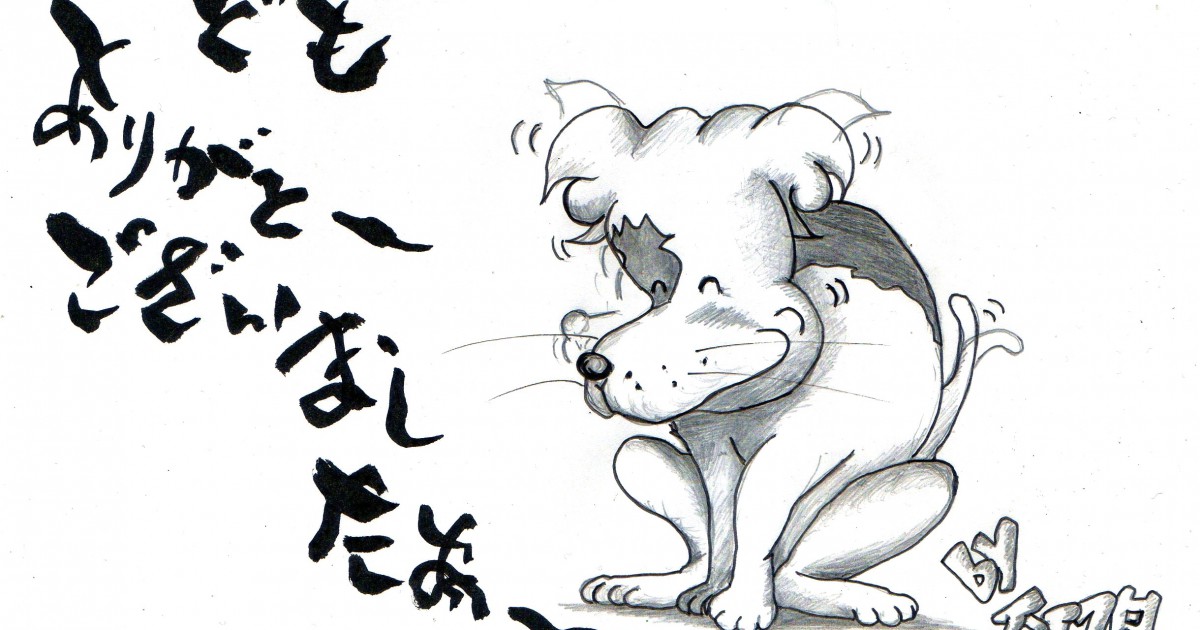 ども
ありがとー
ございまし
たぁー
BY